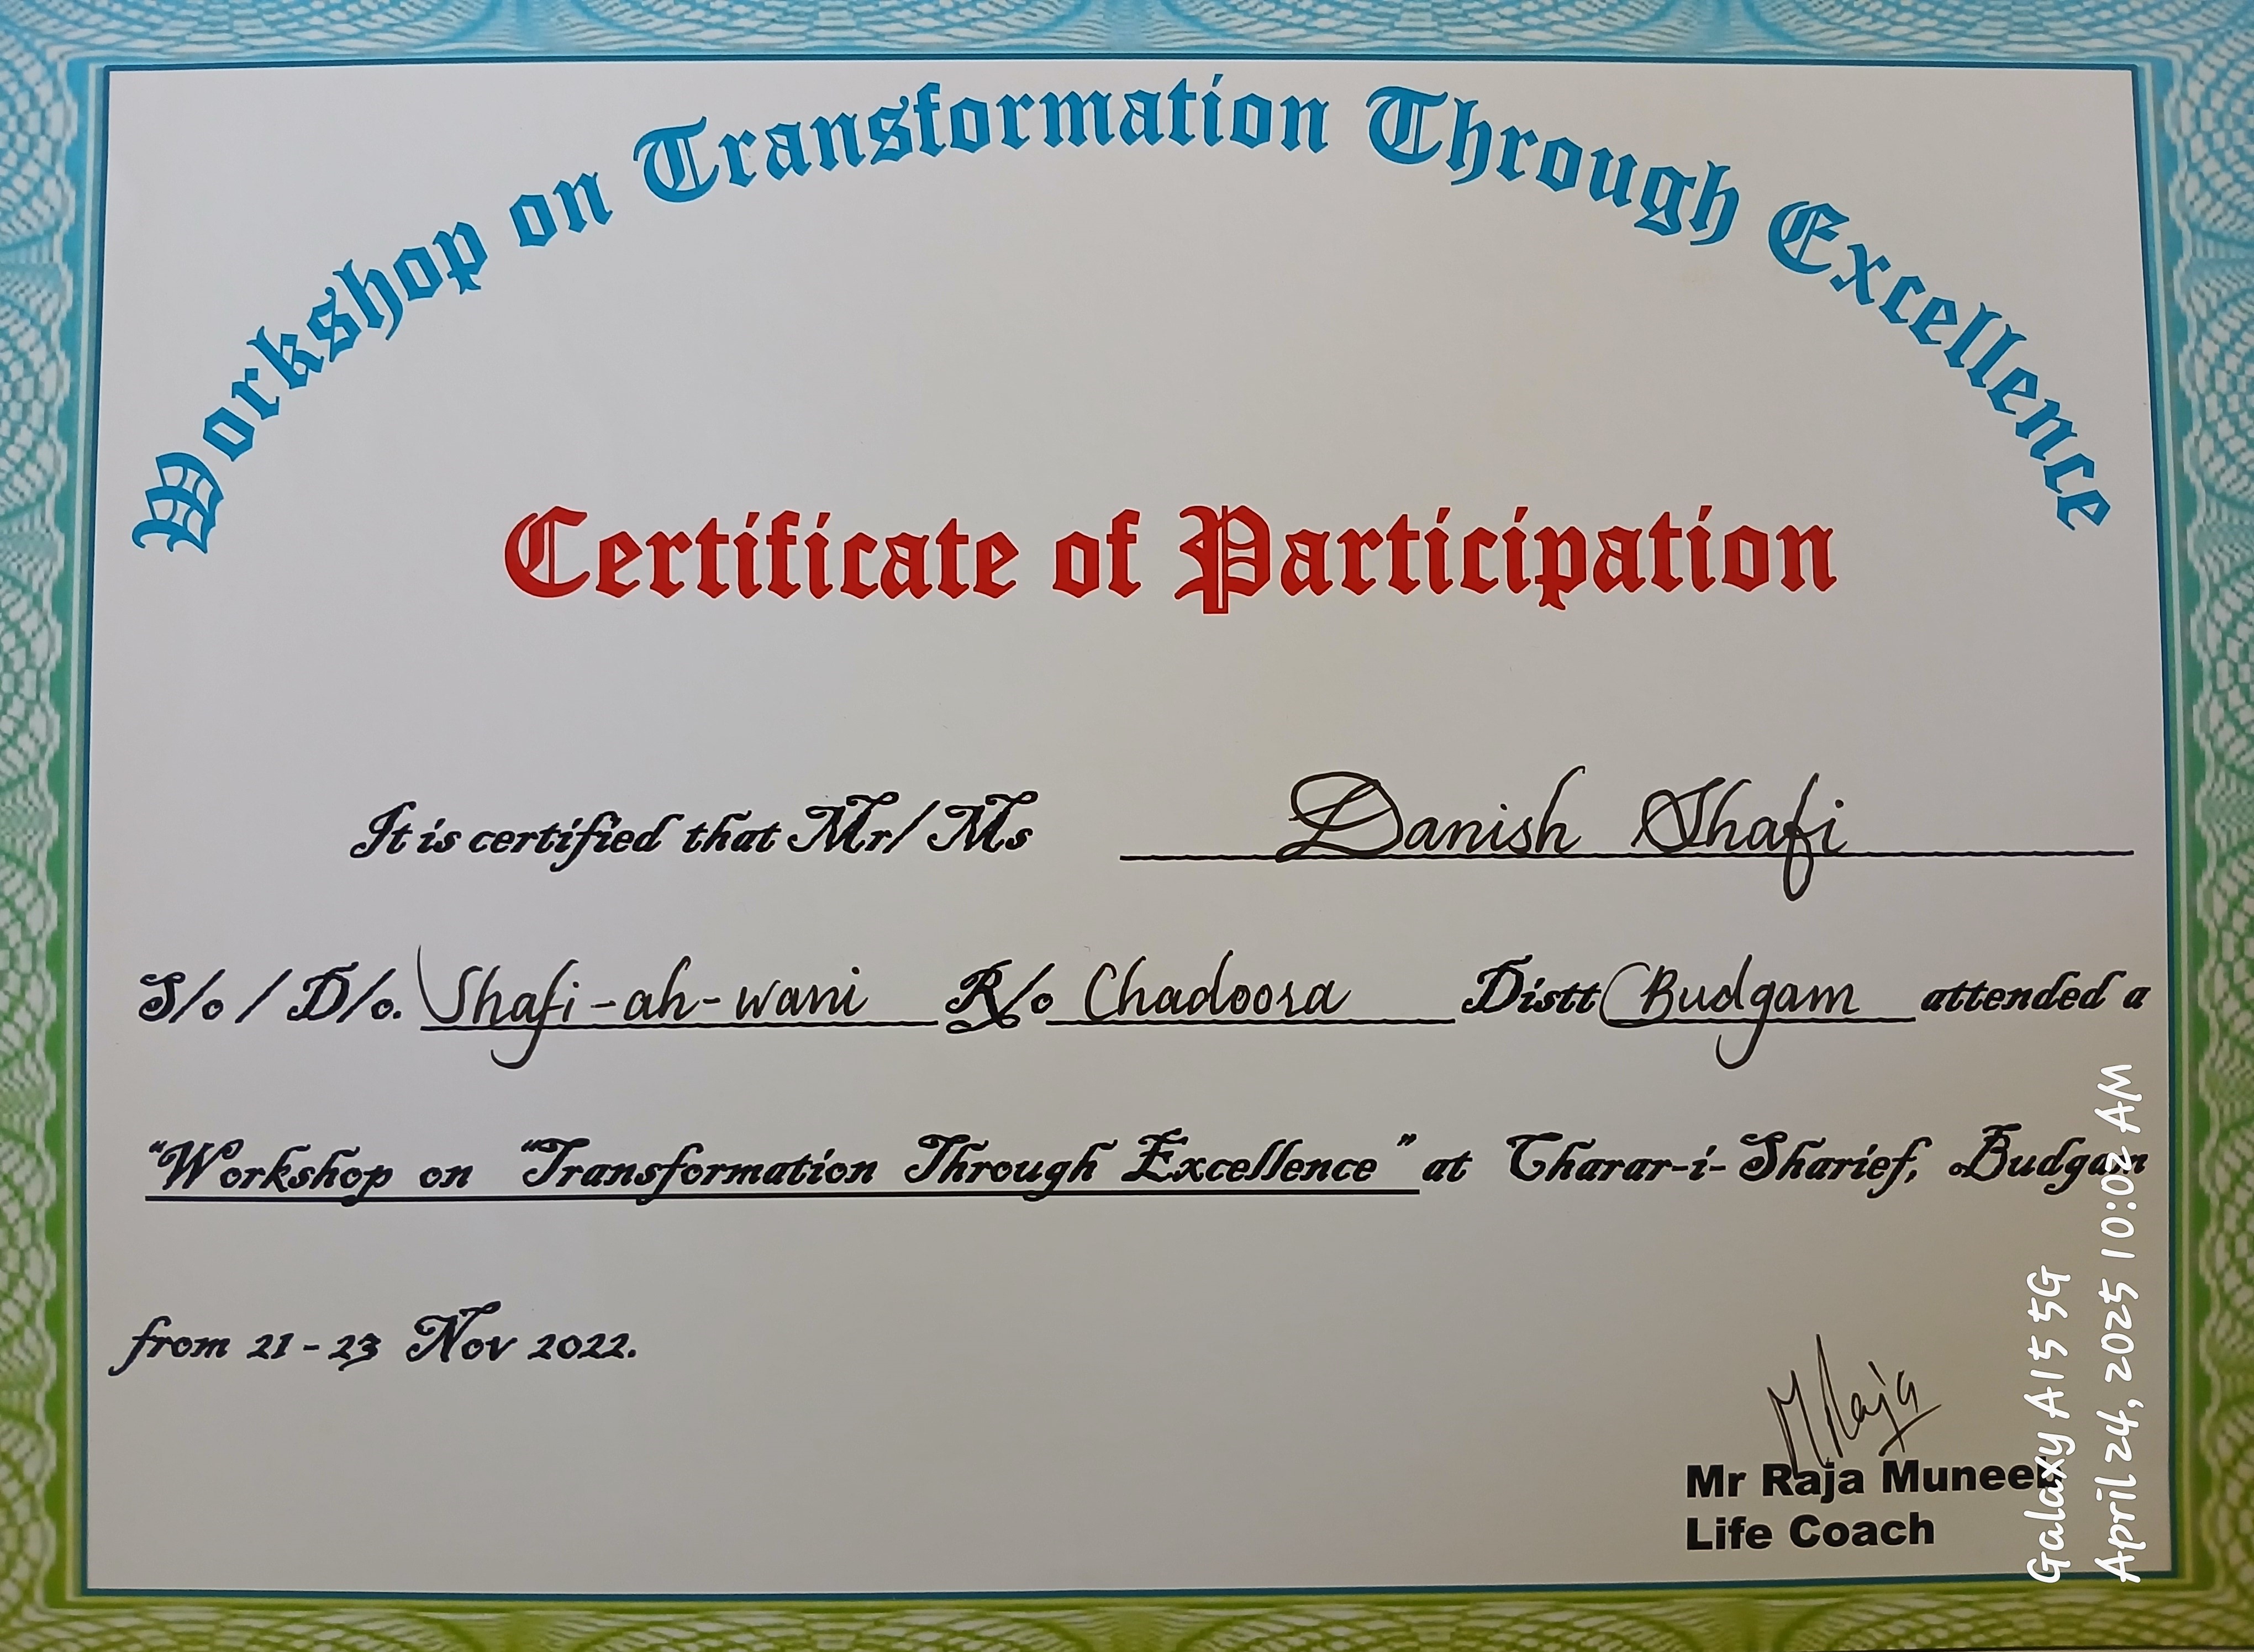 Workshop on Transformation Through Excellence
Certificate of Participation
It is certified that Mr/Ms Danish Shafi
S/o / D/o. Shafi-ah-wani R/o Chadoora Distt Budgam attended a
"Workshop on "Transformation Through Excellence" at Charar-i-Sharief, Budgam
from 21 - 23 Nov 2022.
M Raja
Mr Raja Muneeb
Life Coach
Galaxy A15 5G
April 24, 2025 10:02 AM